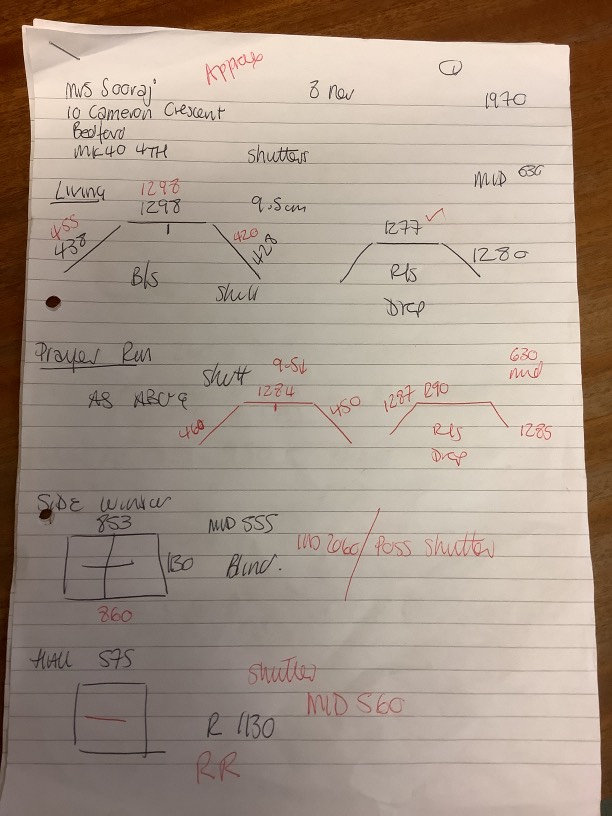 Approx
1
Mrs Sooraj 8 Nov 1970
10 Cameron Crescent
Bedford
MK40 4TH shutters
MID 630
Living 1298
1298 9.5cm 1277 ✓
455 438 420 428 1280
B/s R/s
Shutt Drop
Prayer Rm
Shutt 9.5↓ 630
Mid
AS ABOVE 1284 1287 1290
460 450 R/s 1285
Drop
SIDE Window
853 MID 555
1130 Blind. MID 2060 / Poss Shutter
860
HALL 575
Shutter
MID 560
R 1130
RR